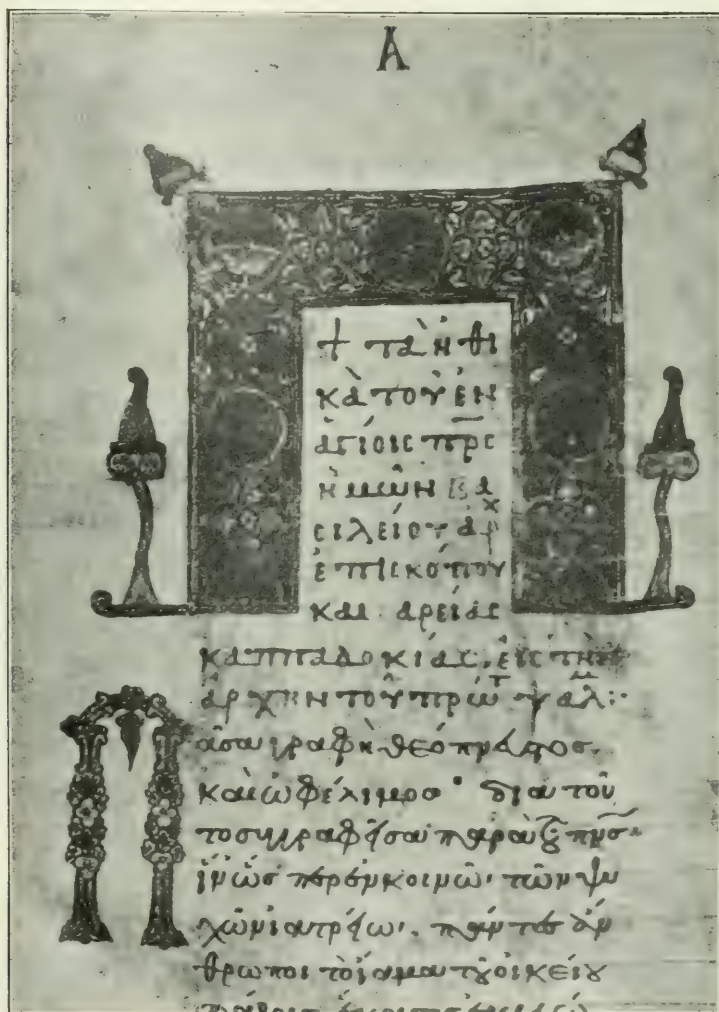 Α
+ τὰ ἠθι
κὰ τοῦ ἐν
ἁγίοις πρς
ἡμῶν βα
σιλείου ἀρχ
ἐπισκόπου
καισαρείας
καππαδοκίας, εἰς τὴν
ἀρχὴν τοῦ πρώτ ψαλμ:·
Πᾶσα γραφὴ θεόπνευστος
καὶ ὠφέλιμος· διὰ τοῦ
το συγγραφεῖσα παρὰ τοῦ πνσ·
ἵν' ὥσπερ ἐν κοινῶ τῶν ψυ
χῶν ἰατρείω, πάντες ἄν
θρωποι τὸ ἴαμα τοῦ οἰκείου